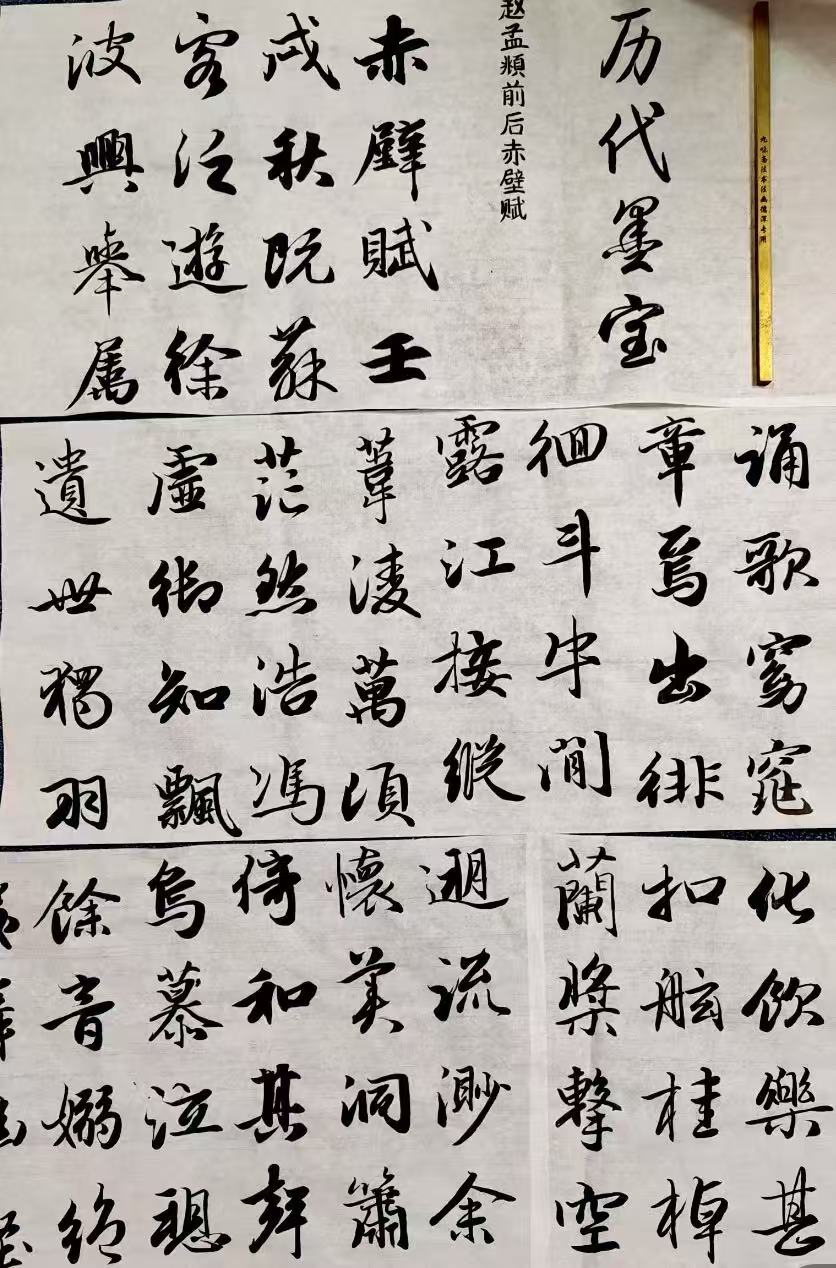 历代墨宝
赵孟頫前后赤壁赋
赤壁賦壬
戌秋既蘇
客泛遊徐
波興舉属
誦歌窈窕
章焉出徘
徊斗牛間
露江接縱
葦凌萬頃
茫然浩馮
虛御知飄
遺世獨羽
化飲樂甚
扣舷桂棹
蘭槳擊空
遡流渺余
懷美洞簫
倚和其聲
烏慕泣聽
餘音嫋絶